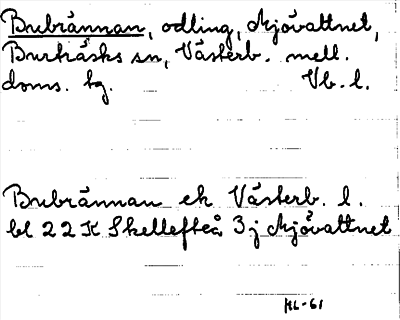 Bubrännan, odling, Mjövattnet,
Burträsks sn, Västerb. mell.
doms. tg. Vb. l.
Bubrännan ek Västerb. l.
bl 22 K Skellefteå 3 j Mjövattnet
HL-61